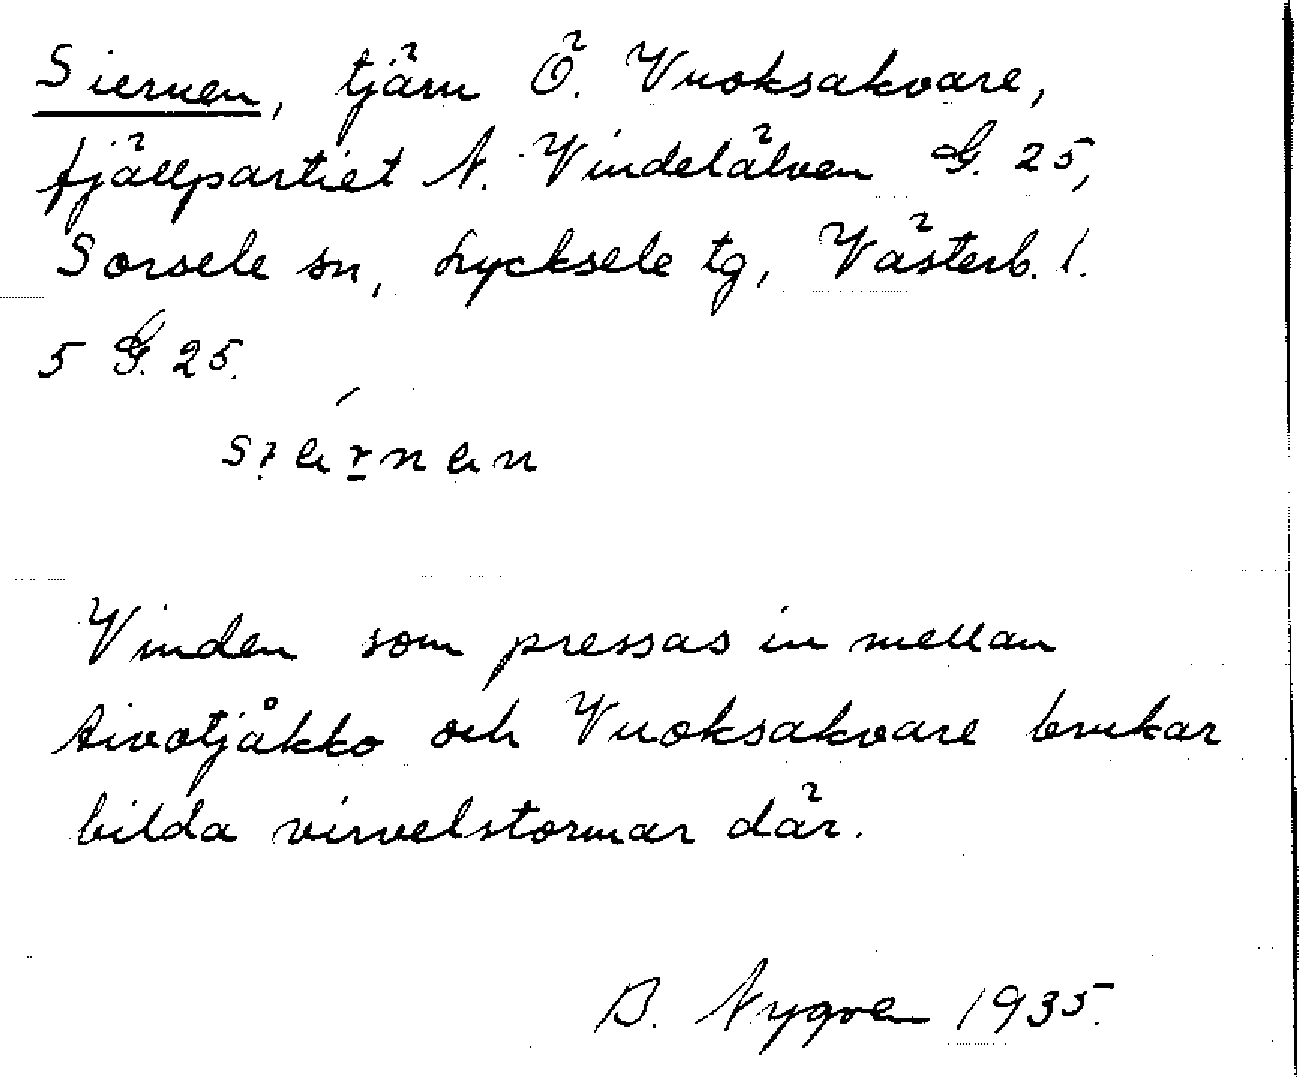 Siernen, tjärn Ö. Vuoksakvare,
fjällpartiet N. Vindelälven G. 25,
Sorsele sn, Lycksele tg, Västerb. l.
5 G. 25.
Vinden som pressas in mellan
Aivotjåkko och Vuoksakvare brukar
bilda virvelstormar där.
B. Nygren 1935.